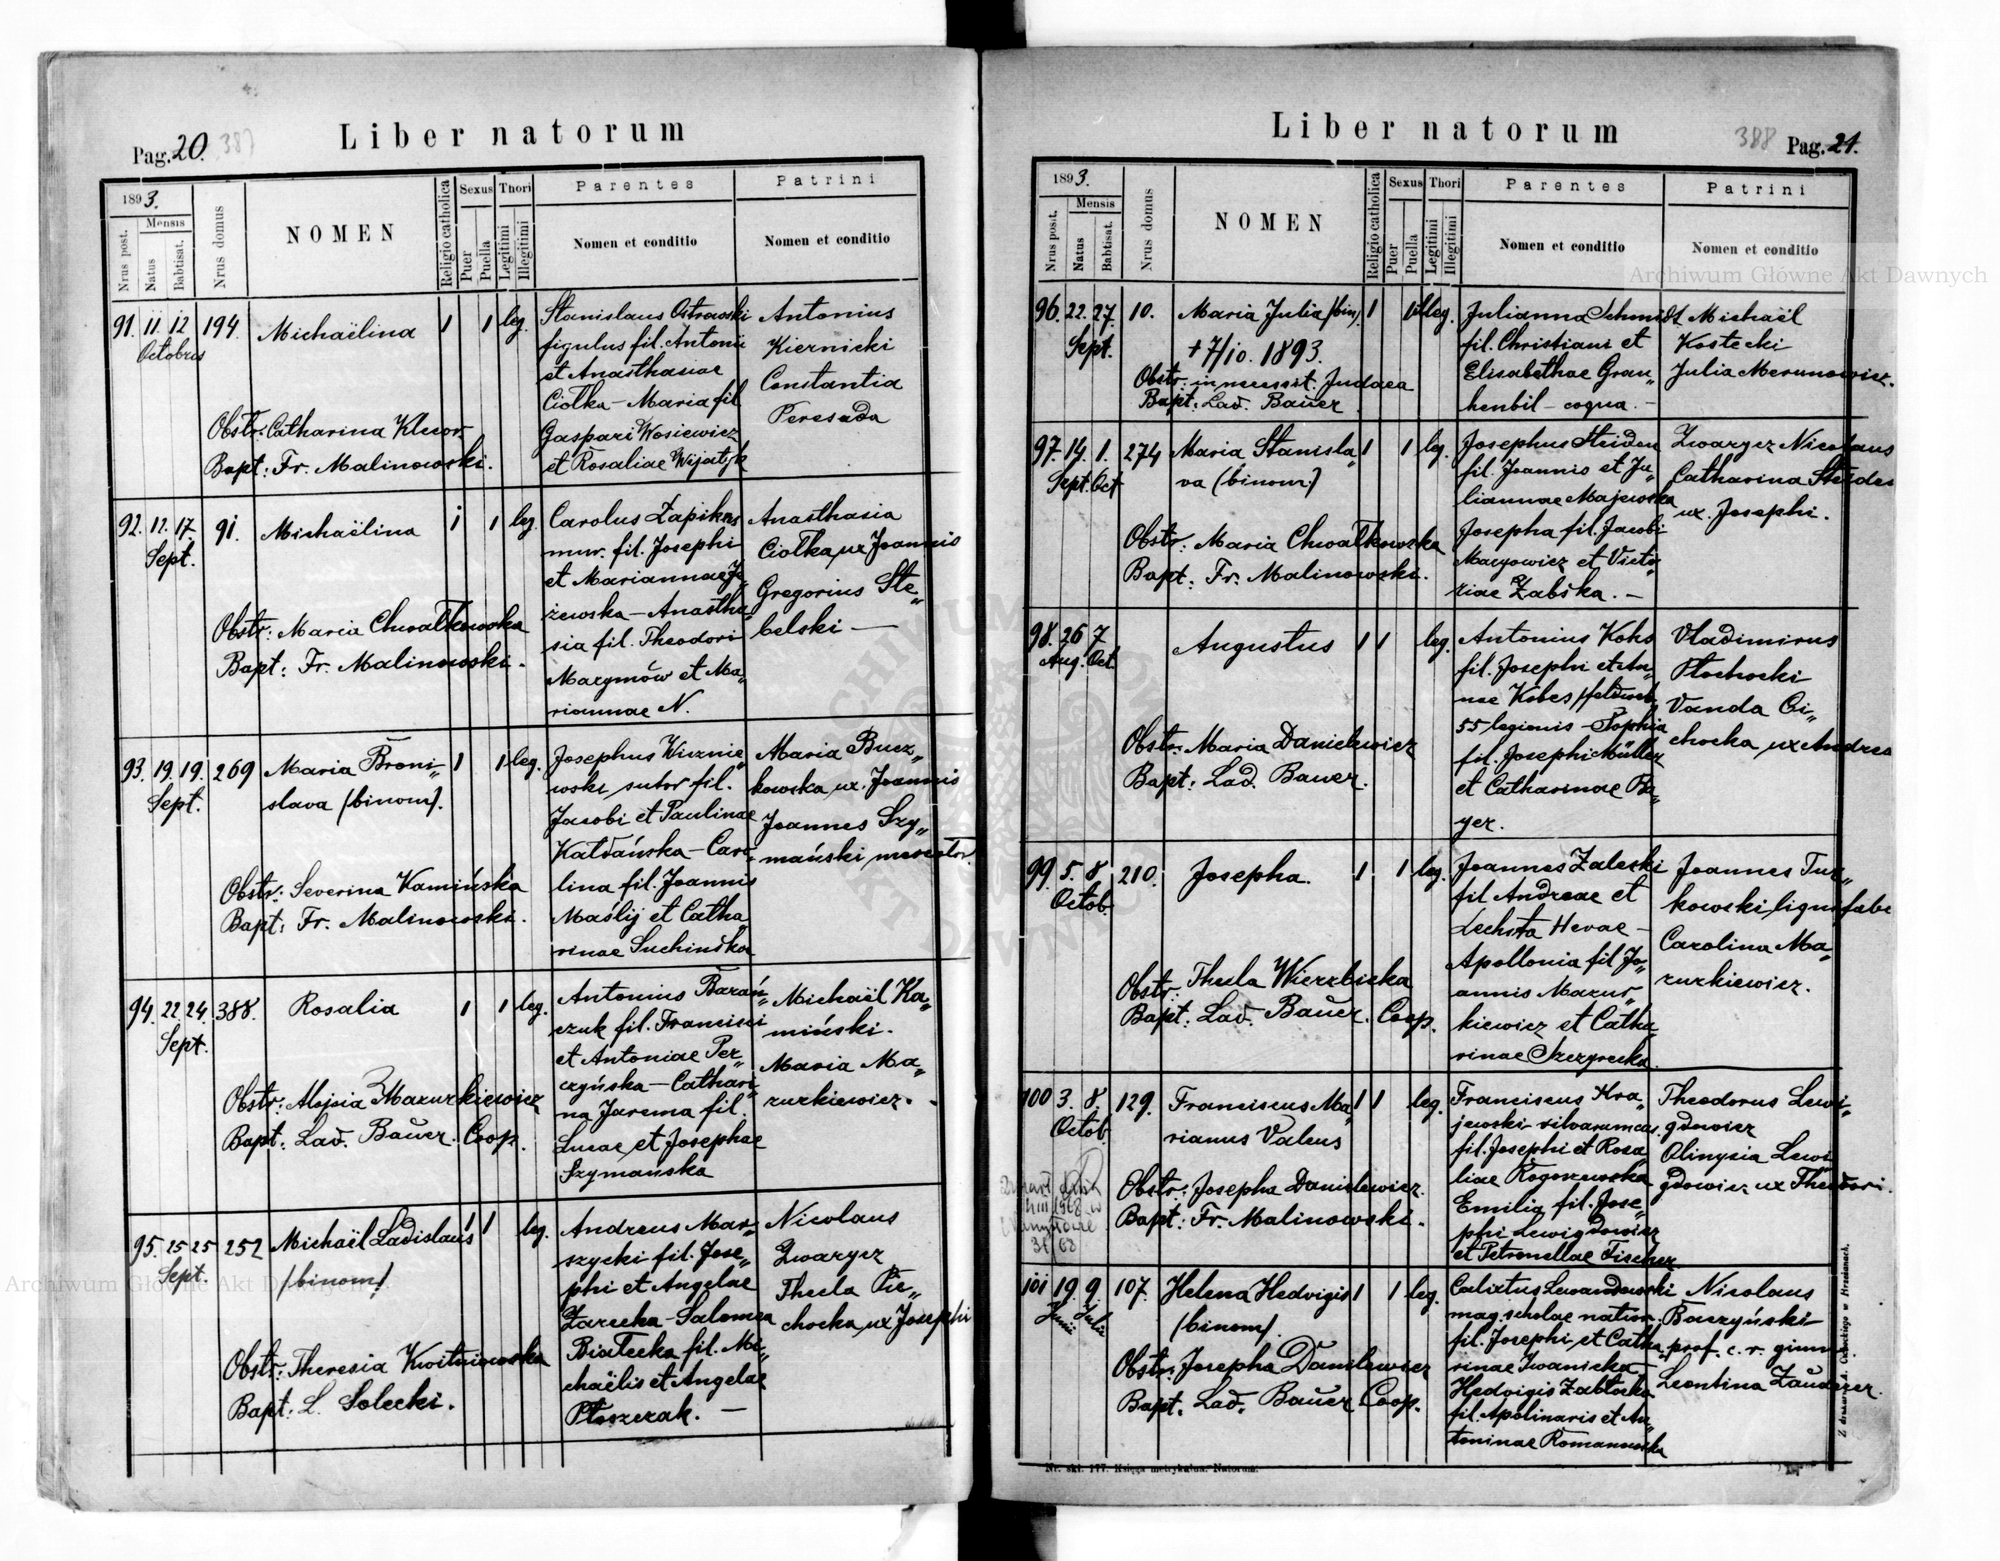 Liber natorum
Pag. 20. 387
1893.
Mensis
Nrus post.
Natus
Babtisat.
Nrus domus
NOMEN
Religio catholica
Sexus
Puer
Puella
Thori
Legitimi
Illegitimi
Parentes
Nomen et conditio
Patrini
Nomen et conditio
91. 11 12 194 Michaëlina 1 1 leg.
Octobris
Obstr: Catharina
Bapt: Fr. Malinowski.
Stanislaus Ostrowski
figulus fil. Antonii
et Anasthasiae
Ciołka – Maria fil
Gaspari Wosiewicz
et Rosaliae
Antonius
Kiernicki
Constantia
Peresada
92. 12. 17. 91. Michaëlina 1 1 leg.
Sept.
Obstr: Maria Chwałkowska
Bapt: Fr. Malinowski.
Carolus Zapikus
mur. fil. Josephi
et Mariannae Je„
żewska – Anastha„
sia fil. Theodori
Marymów et Ma„
riannae N.
Anasthasia
Ciołka, ux Joannis
Gregorius Ste„
belski —
93. 19. 19. 269 Maria Broni„ 1 1 leg.
Sept. slava (binom).
Obstr: Severina Kamińska
Bapt: Fr. Malinowski.
Josephus Wiznie„
wski sutor fil.
Jacobi et Paulinae
Kaldańska – Caro„
lina fil. Joannis
Maślij et Catha„
rinae Suchińska
Maria Bucz„
kowska ux. Joannis
Joannes Szy„
mański mercator.
94. 22. 24. 388. Rosalia 1 1 leg.
Sept.
Obstr: Alojsia Mazurkiewicz
Bapt: Lad. Bauer. Coop.
Antonius Barań„
czuk fil. Francisci
et Antoniae Per„
czyńska – Cathari„
na Jarema fil.
Lucae et Josephae
Szymańska
Michaël Ka„
miński.
Maria Ma„
zurkiewicz.
95. 25 25 252 Michaël Ladislaus 1 1 leg.
Sept. (binom).
Obstr: Theresia Kwitniowska
Bapt: L. Solecki.
Andreas Mar„
szycki fil. Jose„
phi et Angelae
Zarecka – Salomea
Białecka fil. Mi„
chaëlis et Angelae
Płoszczak. —
Nicolaus
Zwarycz
Thecla Cie„
chocka, ux Josephi
Liber natorum
388 Pag. 21.
1893.
Mensis
Nrus post.
Natus
Babtisat.
Nrus domus
NOMEN
Religio catholica
Sexus
Puer
Puella
Thori
Legitimi
Illegitimi
Parentes
Nomen et conditio
Patrini
Nomen et conditio
96. 22. 27. 10. Maria Julia (bin). 1 1 illeg.
Sept. + 7/10. 1893.
Obstr: in necessit. Judaea
Bapt: Lad. Bauer
Julianna Schmidt
fil. Christiani et
Elisabethae Gran„
henbil – cogua. –
Michaël
Kostecki
Julia Merunowicz.
97. 14. 1. 274 Maria Stanisla„ 1 1 leg.
Sept. Oct va (binom.)
Obstr: Maria Chwałkowska
Bapt: Fr. Malinowski.
Josephus Steiden
fil. Joannis et Ju„
liannae Majewska
Josepha fil. Jacobi
Maryowicz et Victo„
riae Żabska. –
Zwarycz Nicolaus
Catharina Steidel
ux. Josephi.
98. 26 7 Augustus 1 1 leg.
Aug. Oct.
Obstr: Maria Danielewicz
Bapt: Lad. Bauer.
Antonius Kohs
fil. Josephi et An„
nae Kobes
55 legionis – Sophia
fil. Josephi Müller
et Catharinae Ba„
yer.
Vladimirus
Płochocki
Vanda Ci„
chocka, ux Andrea
99. 5. 8. 210. Josepha. 1 1 leg.
Octob.
Obstr: Thecla Wierzbicka
Bapt: Lad. Bauer. Coop.
Joannes Zaleski
fil Andreae et
Lechsta Hevae –
Apollonia fil Jo„
annis Mazur„
kiewicz et Catha„
rinae Szczyrecka.
Joannes Tur„
kowski lignifaber
Carolina Ma„
zurkiewicz.
100 3. 8. 129. Franciscus Ma„ 1 1 leg.
Octob. rianus Valens
Obstr: Josepha Danielewicz.
Bapt: Fr. Malinowski.
Franciscus Kra„
jewski silvaramcus
fil. Josephi et Rosa„
liae Rogoszewska
Emilia fil. Jose„
phi Lewigdowicz
et Petronellae Fischer
Theodorus Lewi„
gdowicz
Olimpia Lewi
gdowicz ux Theodori.
101 19. 9. 107. Helena Hedvigis 1 1 leg.
Junii Julii (binom).
Obstr: Josepha Danilewicz
Bapt. Lad. Bauer Coop.
Calixtus Lewandowski
mag. scholae nation.
fil. Josephi et Catha„
rinae Iwanicka –
Hedvigis Zabłocka
fil. Apolinaris et An„
toninae Romanowska
Nicolaus
Baczyński
prof. c. r. gimn.
Leontina Zauderer.
Nr. skł. 177. Księga metrykalna: Natorum.
Z drukarni A. Cużeckiego w Brzeżanach.
Archiwum Główne Akt Dawnych
Archiwum Główne Akt Dawnych